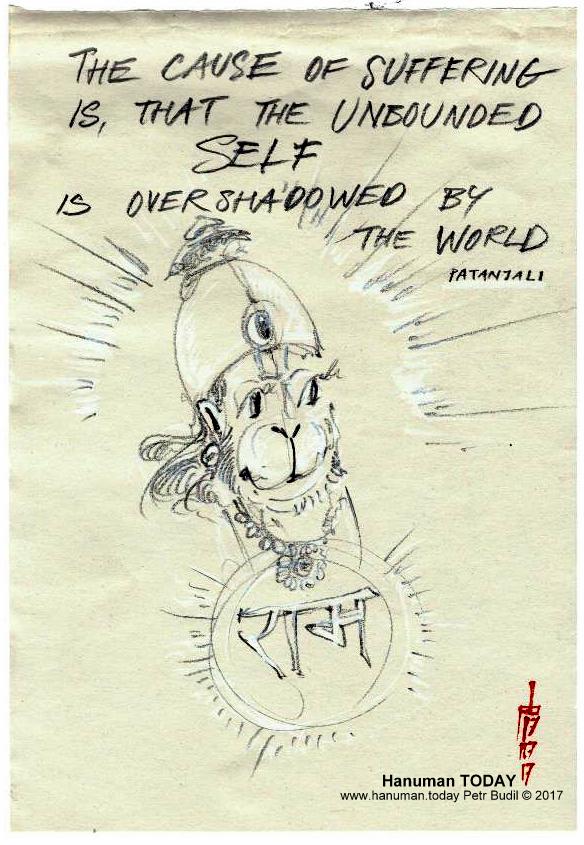 THE CAUSE OF SUFFERING
IS, THAT THE UNBOUNDED
SELF
IS OVERSHADOWED BY
THE WORLD
PATANJALI
राम
Hanuman TODAY
www.hanuman.today Petr Budil © 2017